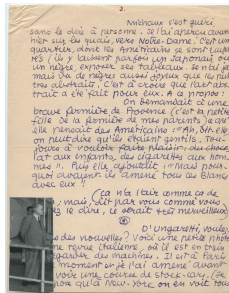 2.
Michaux s'est guéri
sans le dire à personne. Je l'ai aperçu avant
hier sur les quais, vers Notre-Dame. C'est un
quartier, dont les Américains se sont
ils y laissent parfois un Japonais ou
un nègre exposer ses tableaux. Je n'ai ja
mais vu de nègres aussi joyeux que les nè
tres abstraits. C'est à croire que l'art abs-
trait a été fait pour eux. A ce propos:
On demandait à une
brave fermière de (c'est la petite
fille de la fermière de mes parents) ce qu'
elle pensait des Américains: "Ah, bien elle
on peut dire qu'ils étaient gentils. Tou-
jours à vouloir faire plaisir: du choco-
lat aux enfants, des cigarettes aux hommes
Puis elle ajoutait: "mais pour-
quoi avaient-ils amené tous les Blancs
avec eux!"
Ça n'a l'air comme ça de
mais dit par vous comme vous
le dire, ce serait très merveilleux
D'Ungaretti, voulez
des nouvelles? Voici une petite photo
revue italienne, où il est en train
regarder des machines. Il est à Paris
moment et je l'ai amené avant
voir une course de stock-cars,
qu'à New-York on en voit tous